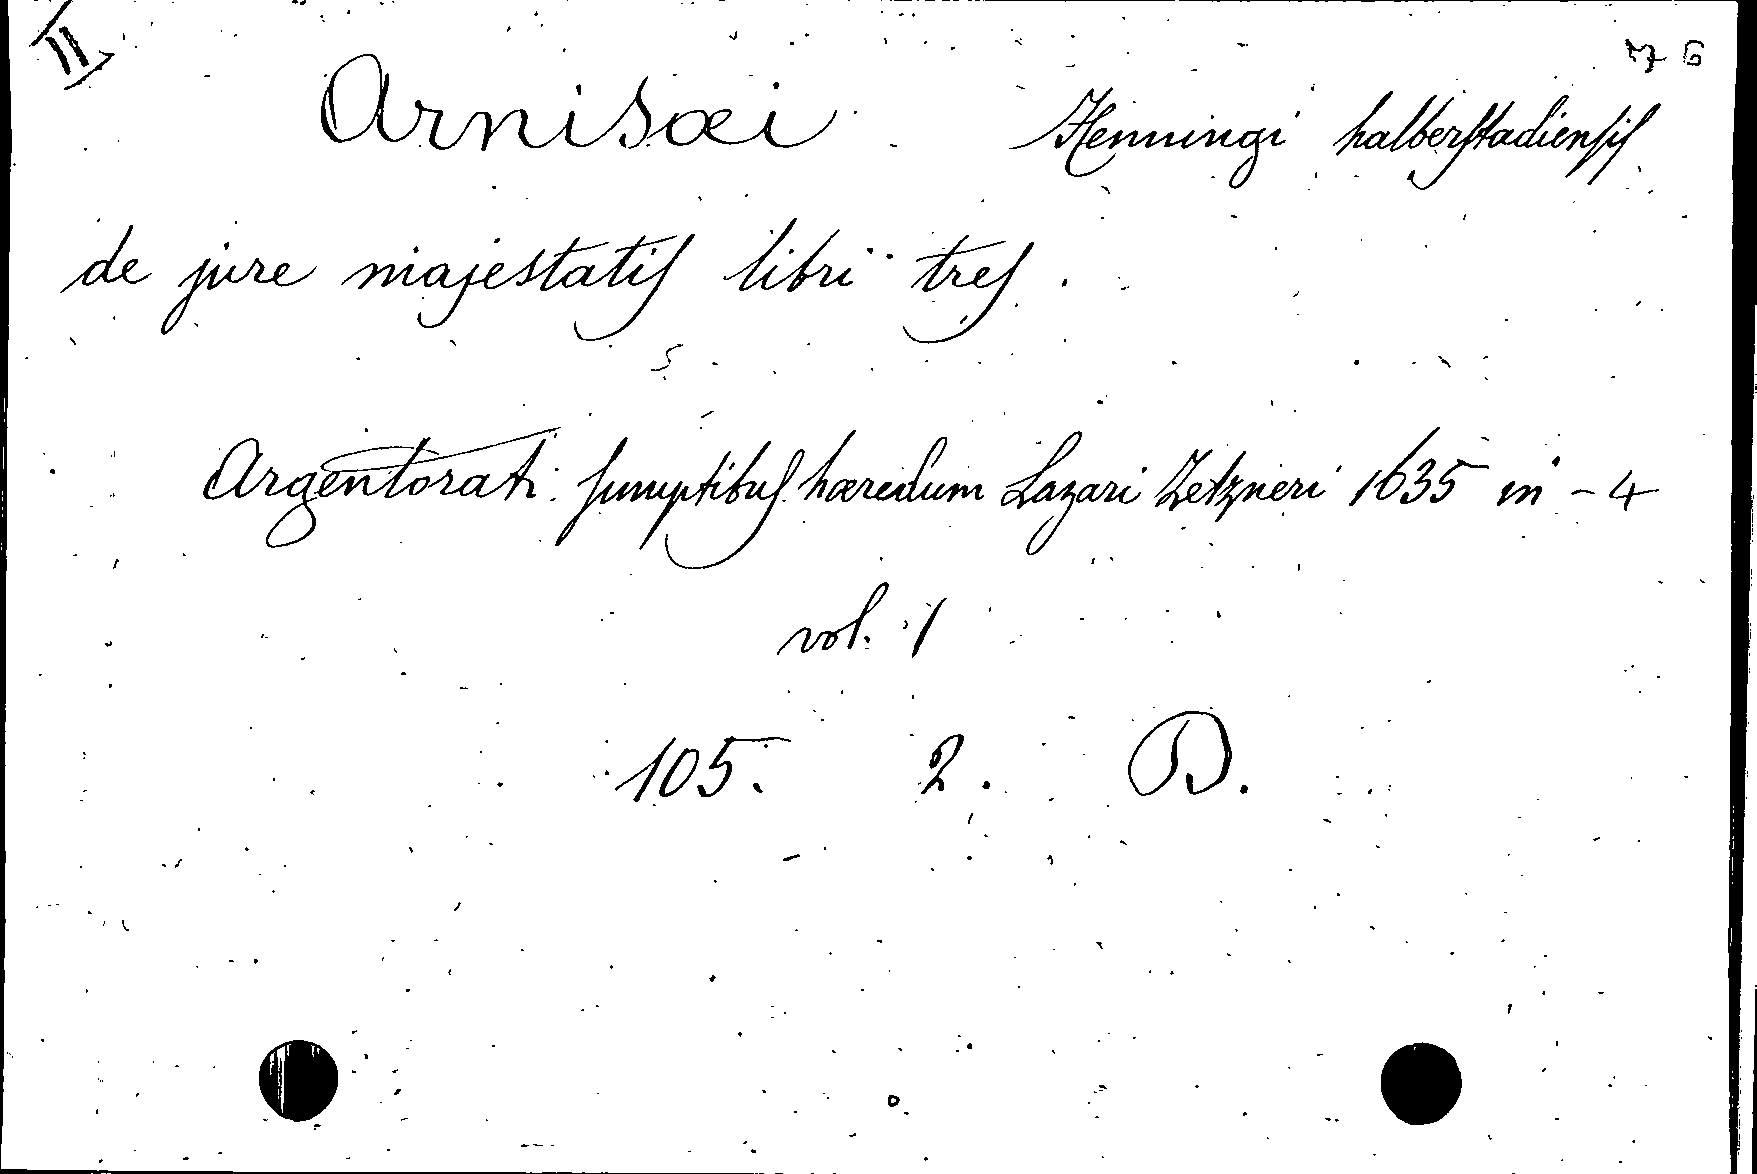 II
Arnisæi Henningi halberstadiensis
de jure majestatis libri tres.
Argentorati sumptibus hæredum Lazari Zetzneri 1635 in-4
vol. 1
105. 2. B.